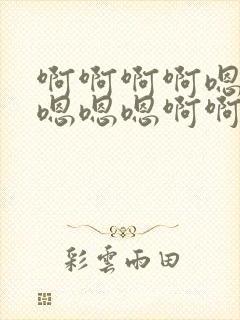 啊啊啊啊嗯
嗯嗯嗯啊啊
彩雲雨田